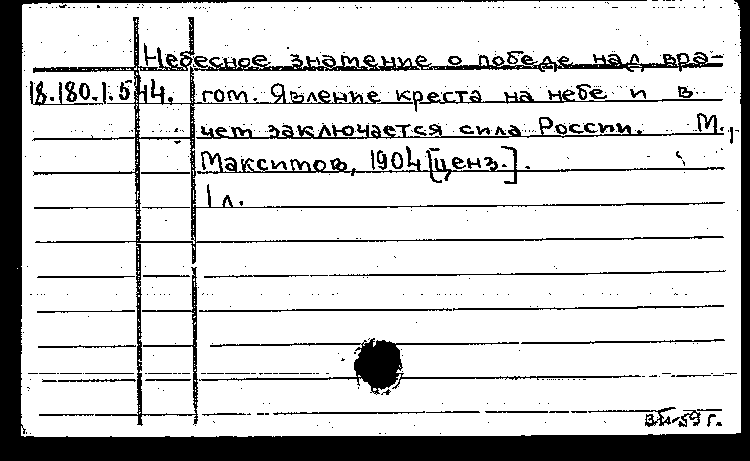 Небесное знамение о победе над вра-
18.180.1.544. гом. Явление креста на небе и в
чем заключается сила России. М.,
Максимов, 1904 [ценз.].
1 л.
59 г.